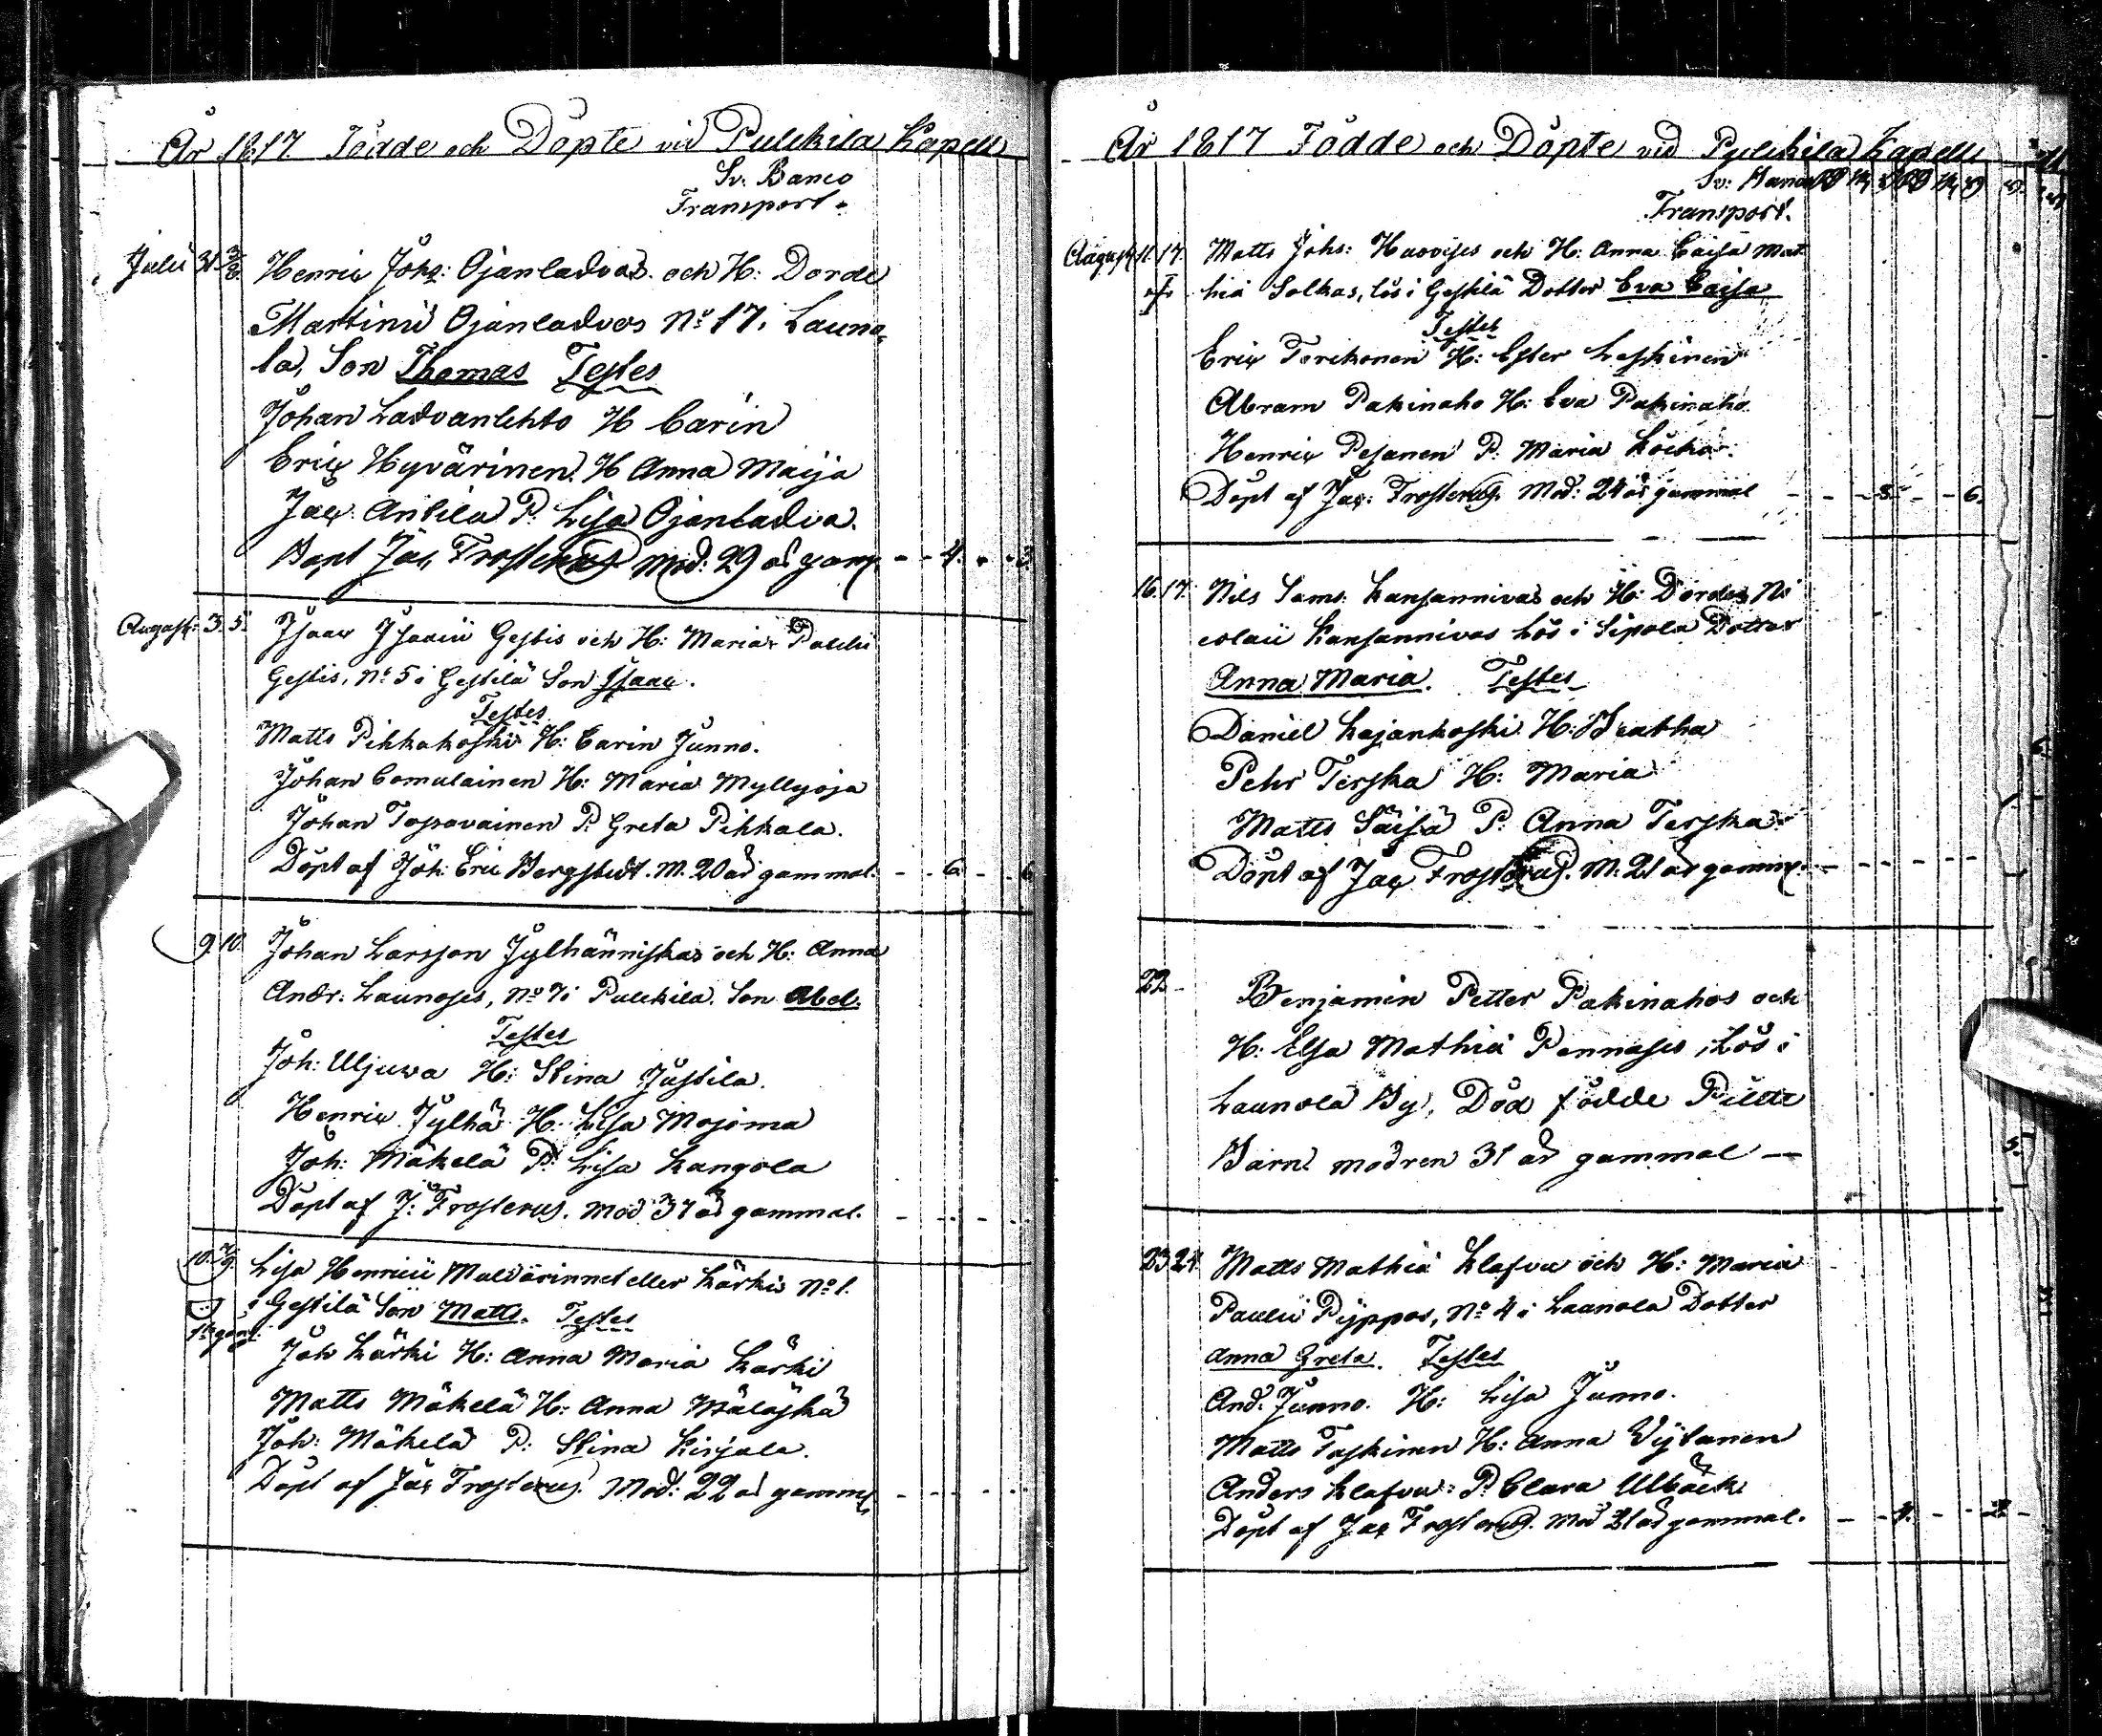 År 1817. Födde och Döpte vid Pulckila Kapell
Sv. Banco
Transport.
Julii 31. 3/8. Henric Johs: Ojanladvas och H: Dorde
Martini Ojanladvos No 17. i Launo-
la, Son Thomas Testes
Johan Ladvanlehto H Carin
Eric Hyvärinen. H Anna Maija
Jac. Antila P. Lisa Ojanladva.
Bapt Jac. Frosterus Mod: 29 år gam. - - 4. - - 3
August: 3. 5. Isaac Isacii Gestis och H: Maria Paulii
Gestis, No 5 i Gestilä Son Isaac.
Testes
Matts Pihkakoski H: Carin Junno.
Johan Comulainen H: Maria Myllyoja
Johan Toppovainen P. Greta Pihkala.
Döpt af Joh: Eric Bergstedt. M. 20 år gammal. - - 6. - - 6
9. 10. Johan Larsson Jylhänniskas och H: Anna
Andr: Launoses, No 7 i Pulckila. Son Abel.
Testes
Joh: Uljuwa H: Stina Justila.
Henric Jylhä H: Lisa Mojoma
Joh: Mäkelä P: Lisa Kangola
Döpt af J: Frosterus. Mod 37 år gammal.
10. Lisa Henricii Malvärinnet eller Kärkis No 1.
i Gestilä Son Matts. Testes
Joh Kärki H: Anna Maria Kärki
Matts Mäkelä H: Anna Mäläskä
Joh: Mäkelä P: Stina Kirjala.
Döpt af Jac Frosterus. Mod: 22 år gamml
År 1817 Födde och Döpte vid Pulckila Kapell
Sv: Banco
Transport.
August 11. 17. Matts Johs: Huovises och H: Anna Caisa Mat
hiæ Solkas, lös i Gestilä Dotter Eva Caisa
Testes
Eric Torikonen H: Ester Leskinen
Abram Pakinaho H: Eva Pakinaho
Henric Pesanen P. Maria Köcko.
Döpt af Jac: Frosterus. Mod: 24 år gammal - - 8 - - 6.
16. 17. Nils Sams: Kansannivas och H: Dordes Ni
colaii Kansannivas Lös i Sipola Dotter
Anna Maria. Testes
Daniel Kajankoski. H: Beatha
Pehr Terska H: Maria
Matts Säisä P: Anna Terska
Döpt af Jac Frosterus. M. 21 år gamml.
22. Benjamin Petter Pakinahos och
H: Elsa Mathiæ Pennases, Lös i
Launola By, Död födde Pilte
Barn. modren 31 år gammal —
23 24. Matts Mathiæ Klafvu och H: Maria
Paulii Pyppos, No 4 i Launola Dotter
Anna Greta. Testes
And. Junno. H: Lisa Junno.
Matts Taskinen H: Anna Vytanen
Anders Klafvu: P. Clara Ulbäck
Döpt af Jac Frosterus. Mod 21 år gammal. - - 4. - - 2.